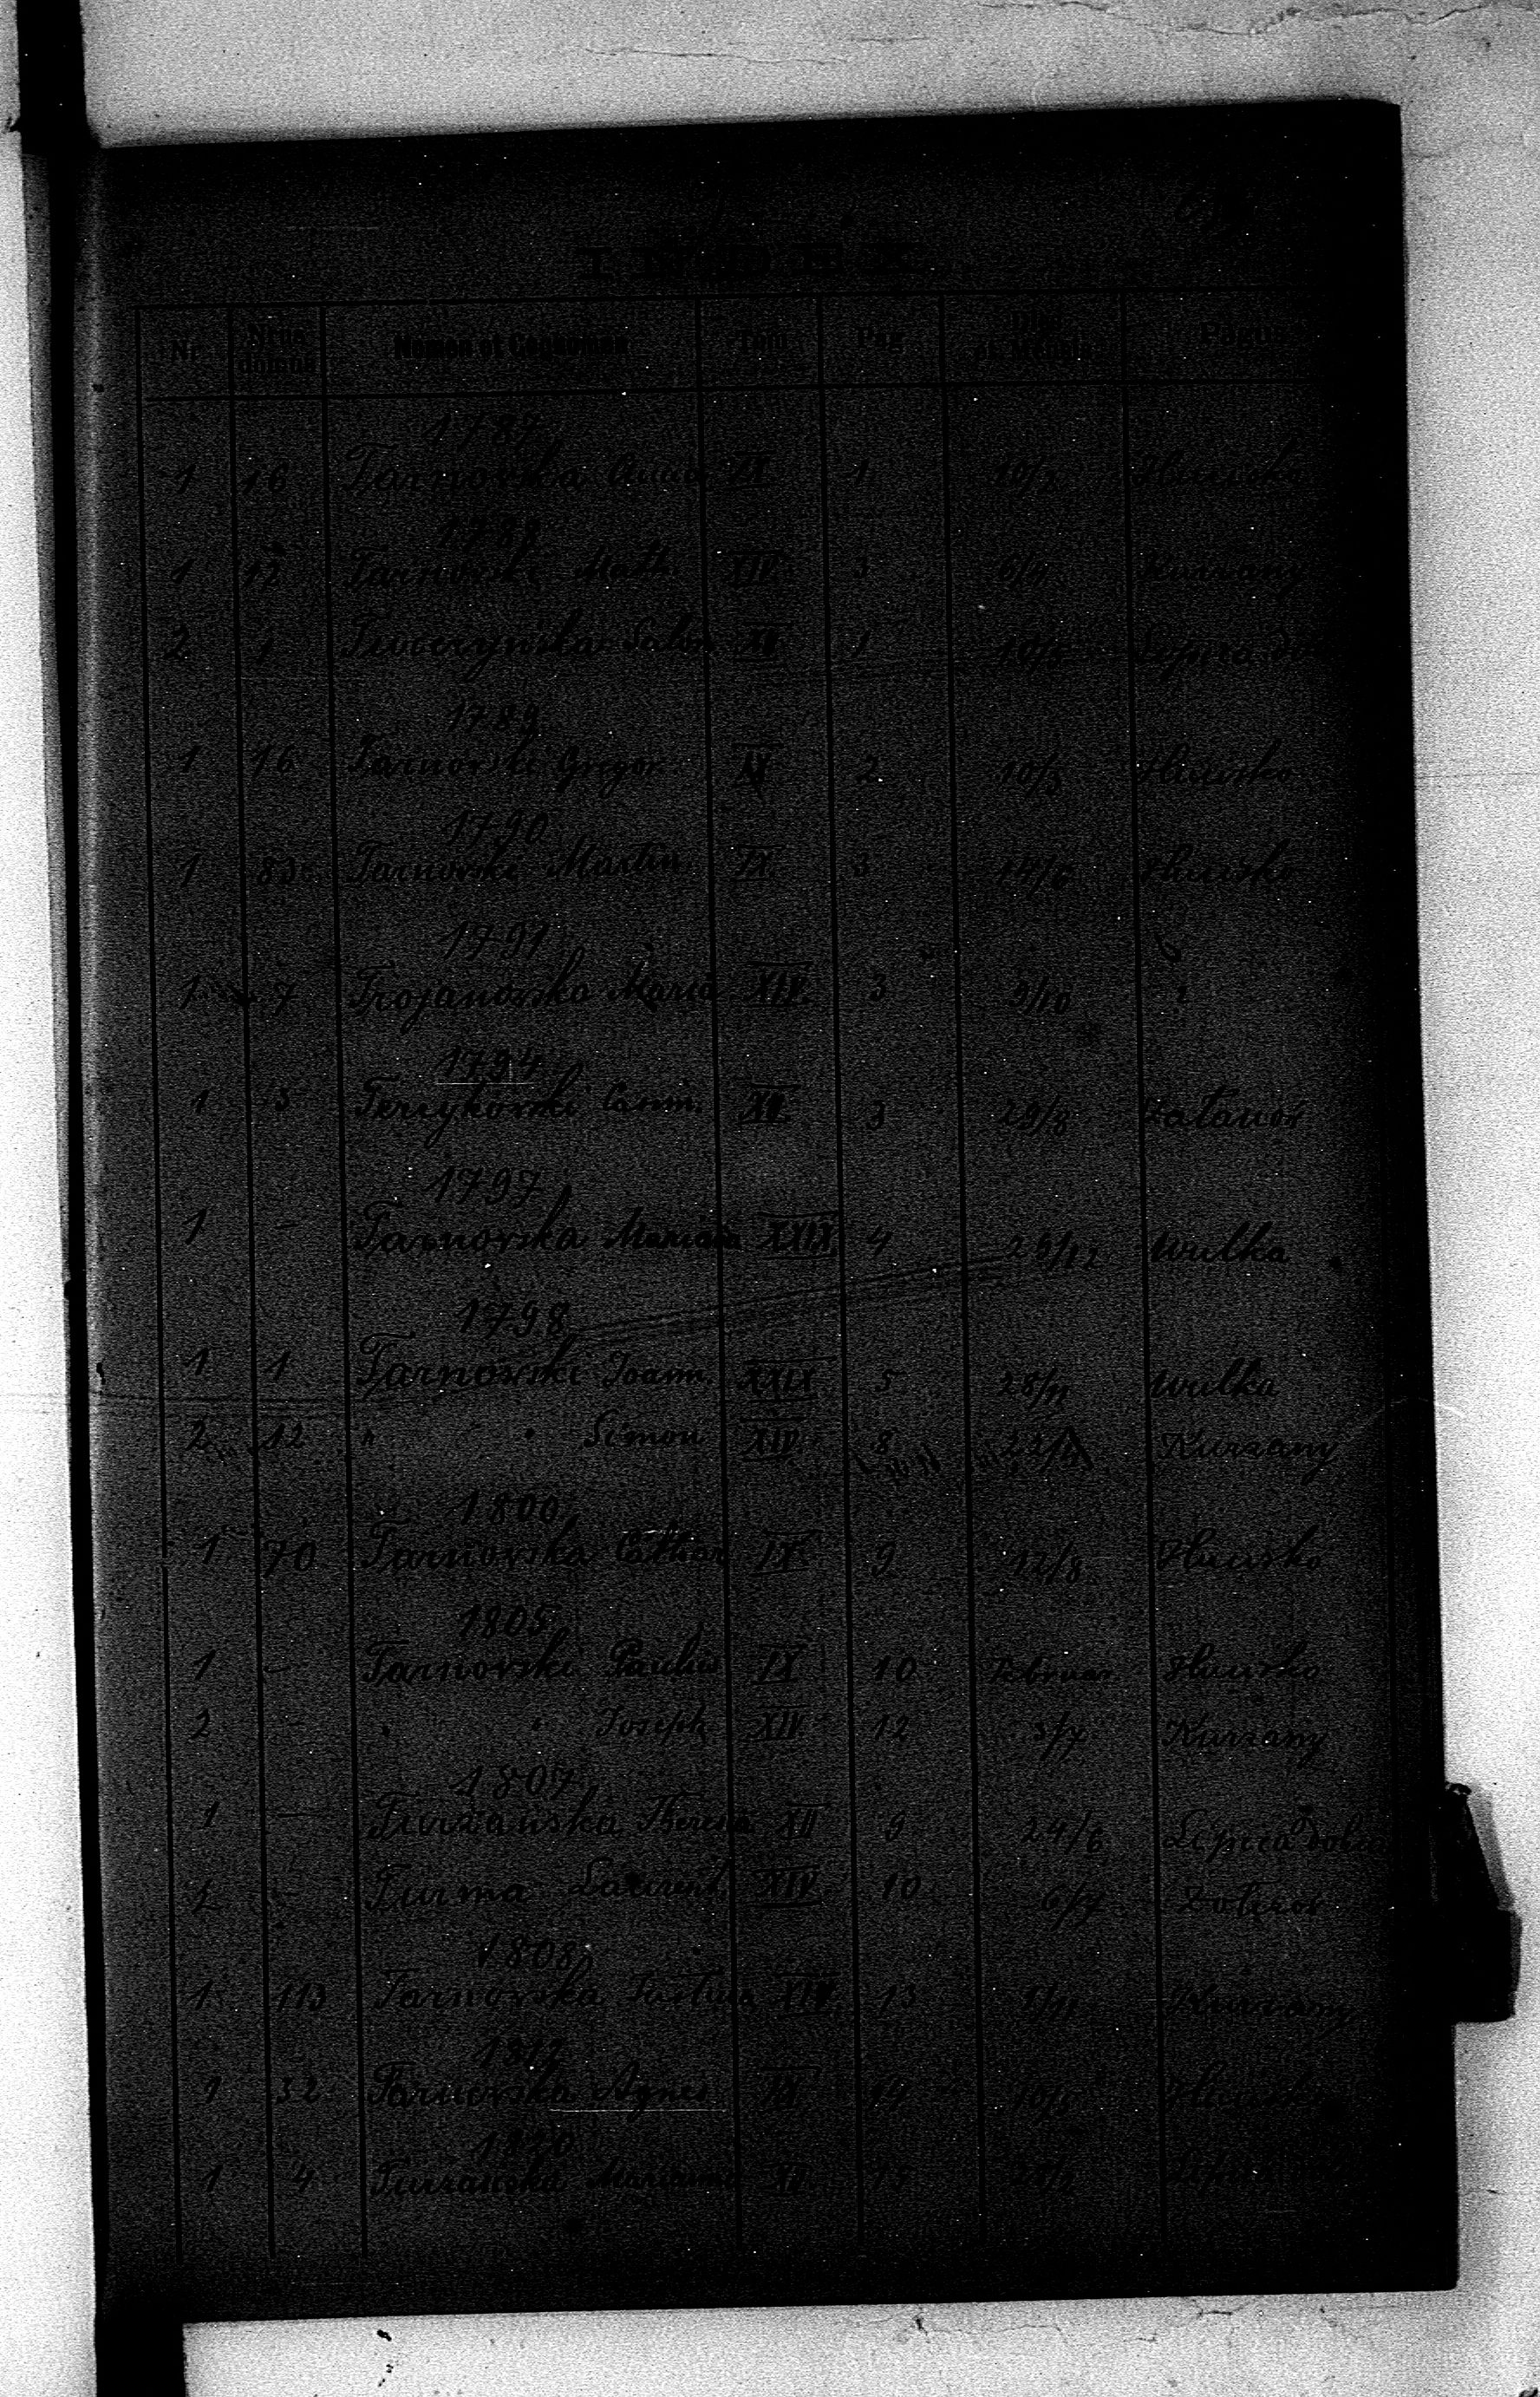 INDEX
Nr. Nrus domus Nomen et Cognomen Tom Pag Dies et Mensis Pagus
1787
1 16 Tarnovska Anna IX 1 10/3 Hucisko
1788
1 12 Tarnovski Math. XIV. 3 6/4 Kurzany
2 1 Tworzynska XV 1 Lipica
1789
1 16 Tarnovski Gregor. IX 2 10/3 Hucisko
1790
1 83 Tarnovski Martin. IX. 3 14/6 Hucisko
1791
1 7 Trojanovska Maria XIV. 3 9/10 ?
1794
1 3 Casim. XV. 3 29/8
1797
1 - Tarnovska Mariana XXIX 4 26/12 Wulka
1798
1 1 Tarnovski Joann. XXIX. 5 28/11 Wulka
2 12 " " Simon XIV. 8 Kurzany
1800
1 70 Tarnovska Cathar IX. 9 12/8 Hucisko
1805
1 - Tarnovski Paulus IX 10 Februar Hucisko
2 - " " Joseph XIV. 12 3/7 Kurzany
1807
1 - Turzańska Theresia XII 9 24/6 Lipica dolna
2 - Turma Laurent. XIV. 10 6/7
1808
1 113 Tarnovska Justina XIV. 13 Kurzany
1812
1 32 Tarnovska Agnes IX. 14 Hucisko
1820
1 4 Turzanska Marianna XV. 15 Lipica